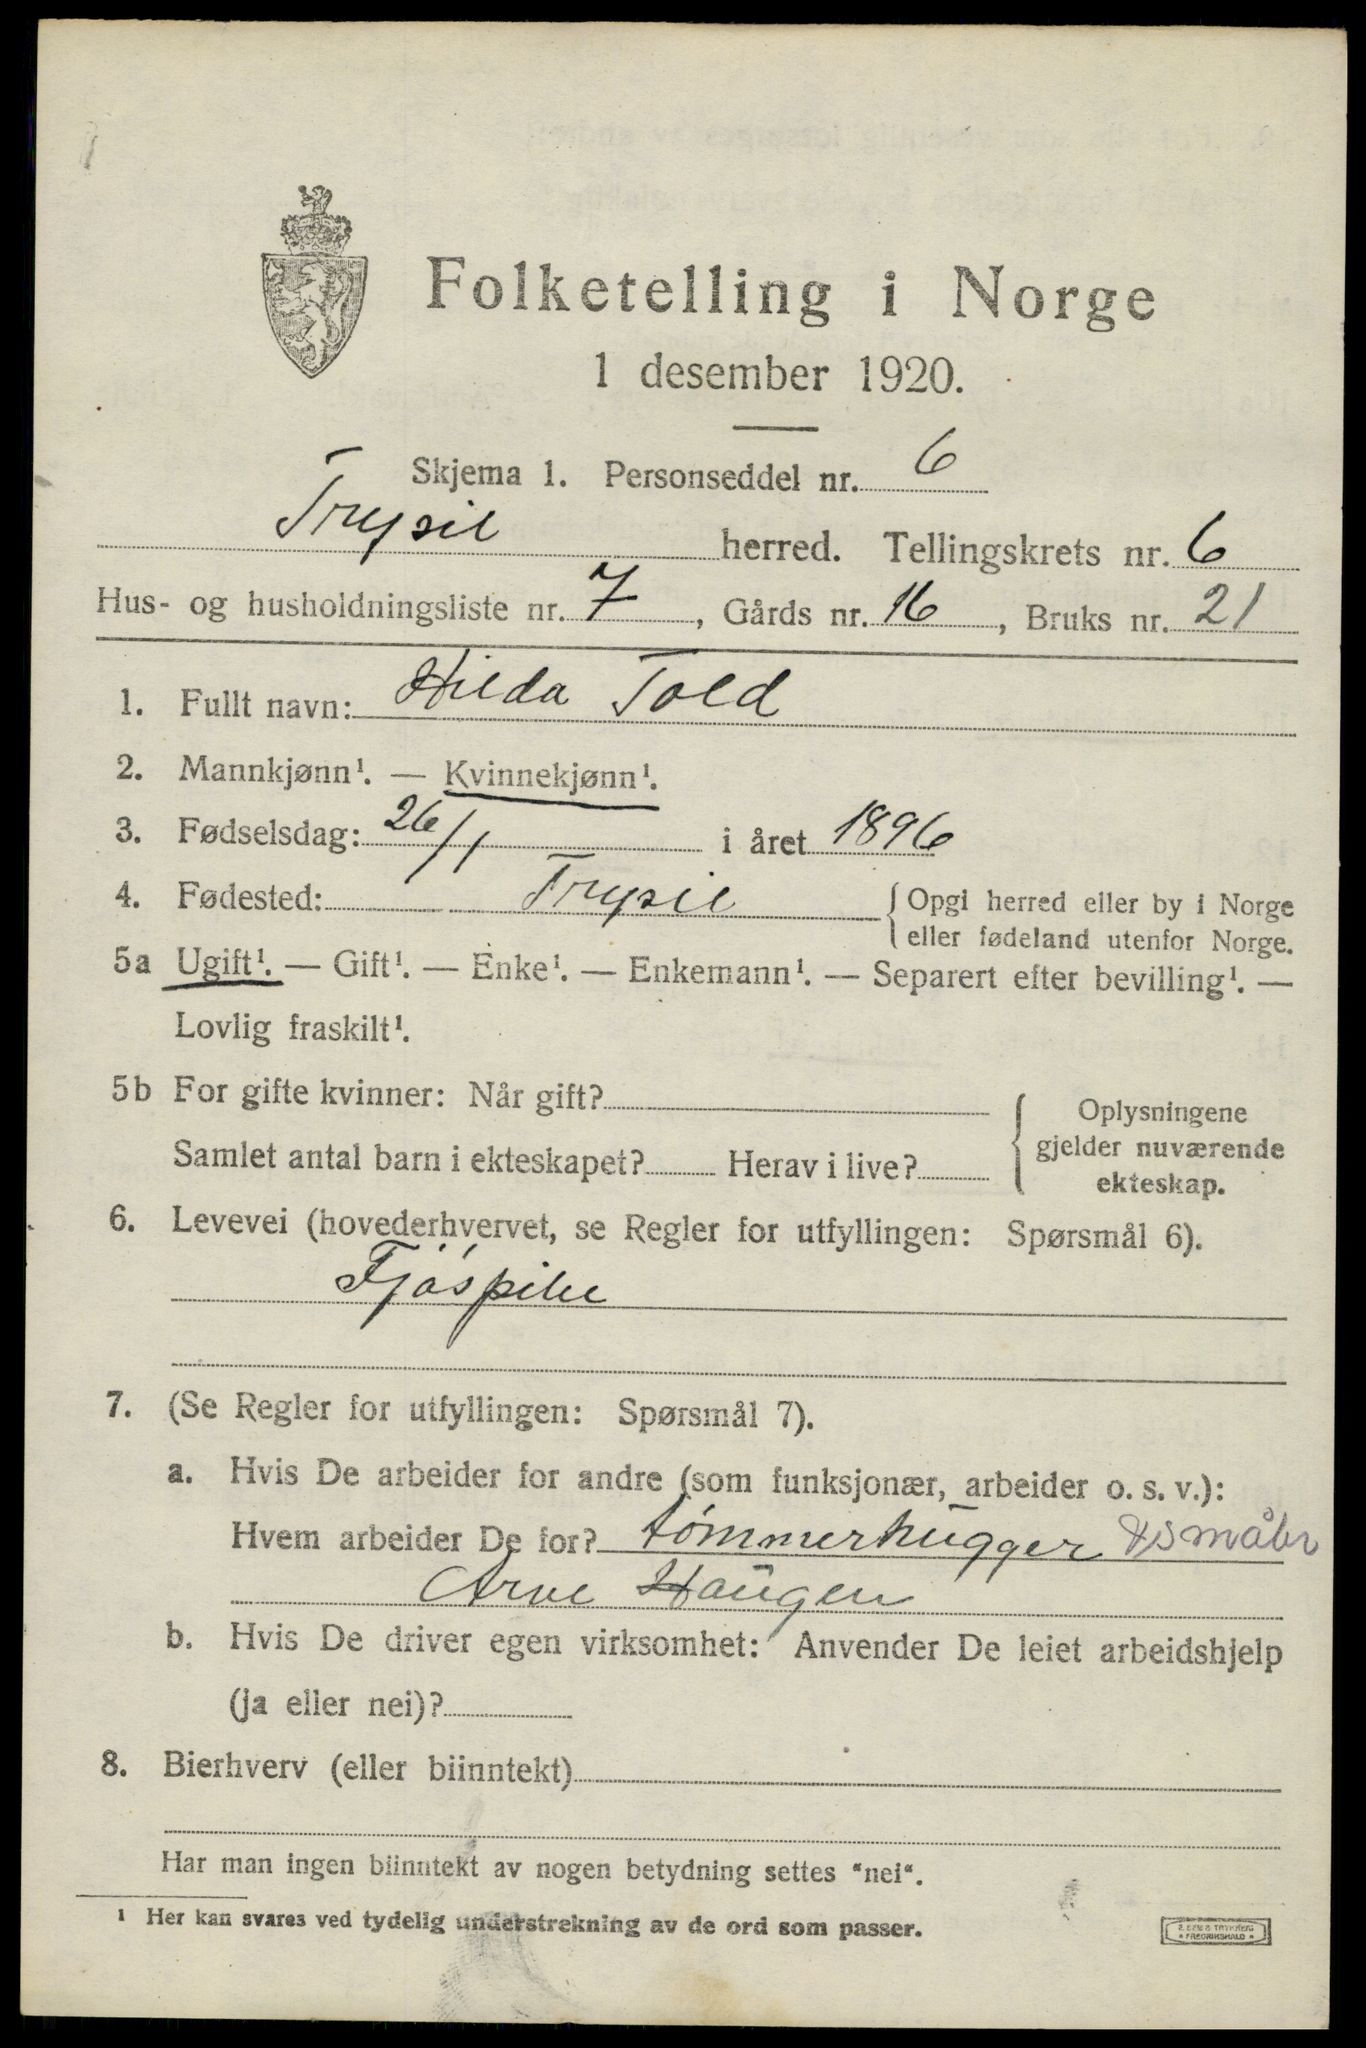 Folketelling i Norge
1 desember 1920.
Skjema 1. Personseddel nr. 6
Trysil herred. Tellingskrets nr. 6
Hus- og husholdningsliste nr. 7, Gårds nr. 16, Bruks nr. 21
1. Fullt navn: Hilda Told
2. Mannkjønn¹. — Kvinnekjønn¹.
3. Fødselsdag: 26/1 i året 1896
4. Fødested: Trysil {Opgi herred eller by i Norge
eller fødeland utenfor Norge.
5a Ugift¹. — Gift¹. — Enke¹. — Enkemann¹. — Separert efter bevilling¹. —
Lovlig fraskilt¹.
5b For gifte kvinner: Når gift?
Samlet antal barn i ekteskapet? Herav i live?
Oplysningene
gjelder nuværende
ekteskap.
6. Levevei (hovederhvervet, se Regler for utfyllingen: Spørsmål 6).
Fjóspike
7. (Se Regler for utfyllingen: Spørsmål 7).
a. Hvis De arbeider for andre (som funksjonær, arbeider o. s. v.):
Hvem arbeider De for? tømmerhugger & småbr
Arne Haugen
b. Hvis De driver egen virksomhet: Anvender De leiet arbeidshjelp
(ja eller nei)?
8. Bierhverv (eller biinntekt)
Har man ingen biinntekt av nogen betydning settes "nei".
¹ Her kan svares ved tydelig understrekning av de ord som passer.